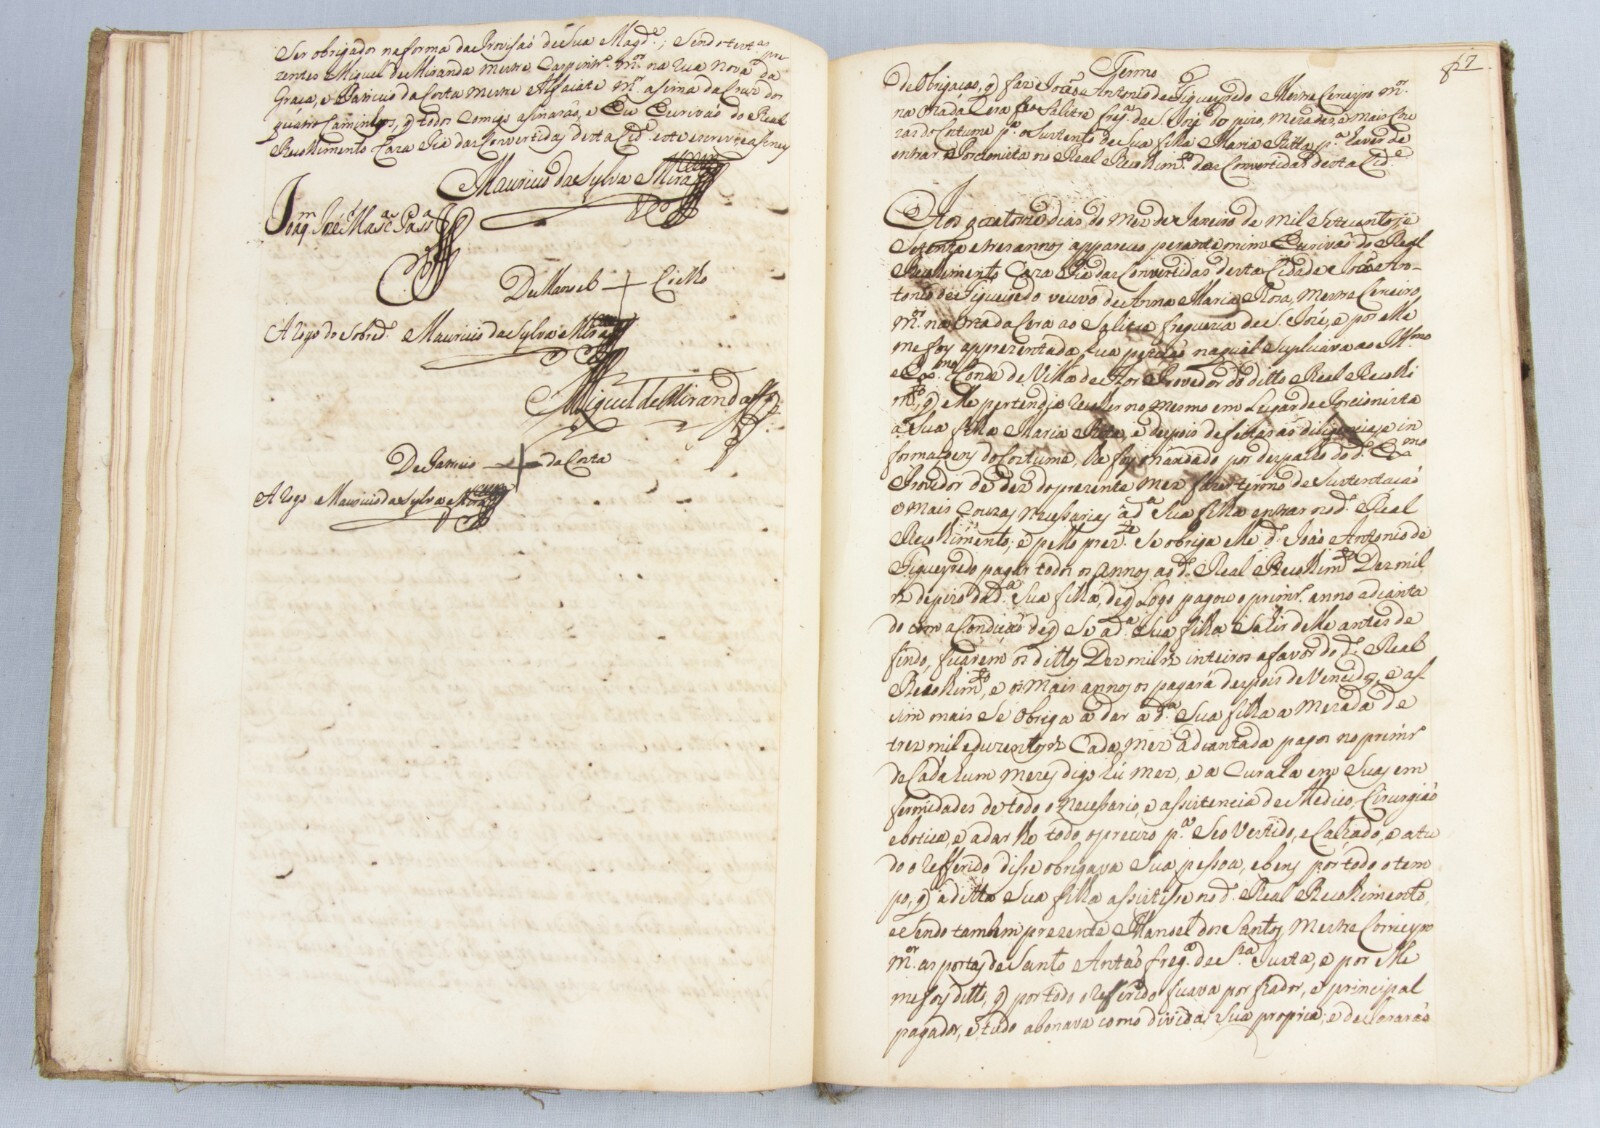 Ser obrigados na forma da Provisaõ de Sua Magd.e; Sendo test.as pre-
zentes Miguel de Miranda Mestre Carpintr.o m.or na Rua Nova da
Graça, e Patricio da Costa Mestre Alfaiate m.or asima da Cruz dos
quatro Caminhos, q̃ todos Comigo asinaraõ, e Eu Escrivaõ do Real
Recolhimento Caza Pia das Convertidas desta Cid.e este escrevi e asiney
Mauricio da Sylva e Mira
Joaq.m Jozé
De Manoel + Coelho
A rogo do Sobred.o Mauricio da Sylva e Mira
Miguel de Miranda
De Patricio + da Costa
A rogo Mauricio da Sylva e Mira
67
Termo
De Obrigaçaõ, q̃ faz Joaõ Antonio de Figueyredo Mestre Cerieyro m.or
na Cera Salitre Freg.a de S. Joze do pizo, Mezadas, e mais Cou
zas do Costume p.a o Sustento de Sua filha Maria Ritta p.a haver de
entrar Porcionista no Real Recolhim.to das Convertidas desta Cid.e
Aos quatorze dias do Mez de Janeiro de Mil Setecentos, e
Setenta e tres annos appareceo perante mim Escrivaõ do Real
Recolhimento Caza Pia das Convertidas desta Cidade Joaõ An-
tonio de Figueiredo veuvo de Anna Maria Roza, Mestre Cerieiro
m.or na Cera ao Salitre freguezia de S. Joze, e por elle
me foy apprezentada sua petiçaõ na qual Suplicava ao Ill.mo
e Ex.mo Conde de Villa de Flor Provedor do ditto Real Recolhi
m.to, q̃ elle pertendia recolher no mesmo em Lugar de Porcionista
a Sua filha Maria Rita, e depois de feitas as diligencias, e in
formaçoens do Costume, lhe foy mandado por despacho do d.o Ex.mo
Provedor de dez do prezente Mez fazer termo de Sustentaçaõ
e mais Couzas necessarias á d.a Sua filha entrar no d.o Real
Recolhimento; e pello prez.te Se obriga elle d.o Joaõ Antonio de
Figueyredo pagar todos os annos ao d.o Real Recolhim.to Dez mil
rs de pizo da d.a Sua filha, de q̃ Logo pagou o primr.o anno adianta
do com a Condiçaõ de q̃ Se a d.a Sua filha Sahir delle antes de
findo, ficarem os dittos Dez mil rs inteiros a favor do d.o Real
Recolhim.to, e os mais annos os pagará despois de Vencidos, e as
sim mais Se Obriga a dar á d.a Sua filha a Mezada de
trez mil e duzentos rs Cada mez adiantada pagos no primr.o
de Cada hum mezes digo hú mez, e a Curala em Suas em
fermidades de todo o necessario, e assistencia de Medico, Cirurgiaõ
e botica, e a dar lhe todo o precizo p.a Seo Vestido, e Calçado, e a tu
do o Refferido disse obrigava Sua pessoa, e bens por todo o tem
po, q̃ a ditta Sua filha assistisse no d.o Real Recolhimento,
e Sendo tambem prezente Manoel dos Santos Mestre Corrieyro
m.or as portas de Santo Antaõ freg.a de S.ta Justa, e por elle
me foy ditto, q̃ por todo o Refferido ficava por fiador, e principal
pagador, e tudo abonava como divida Sua propria; e declararaõ